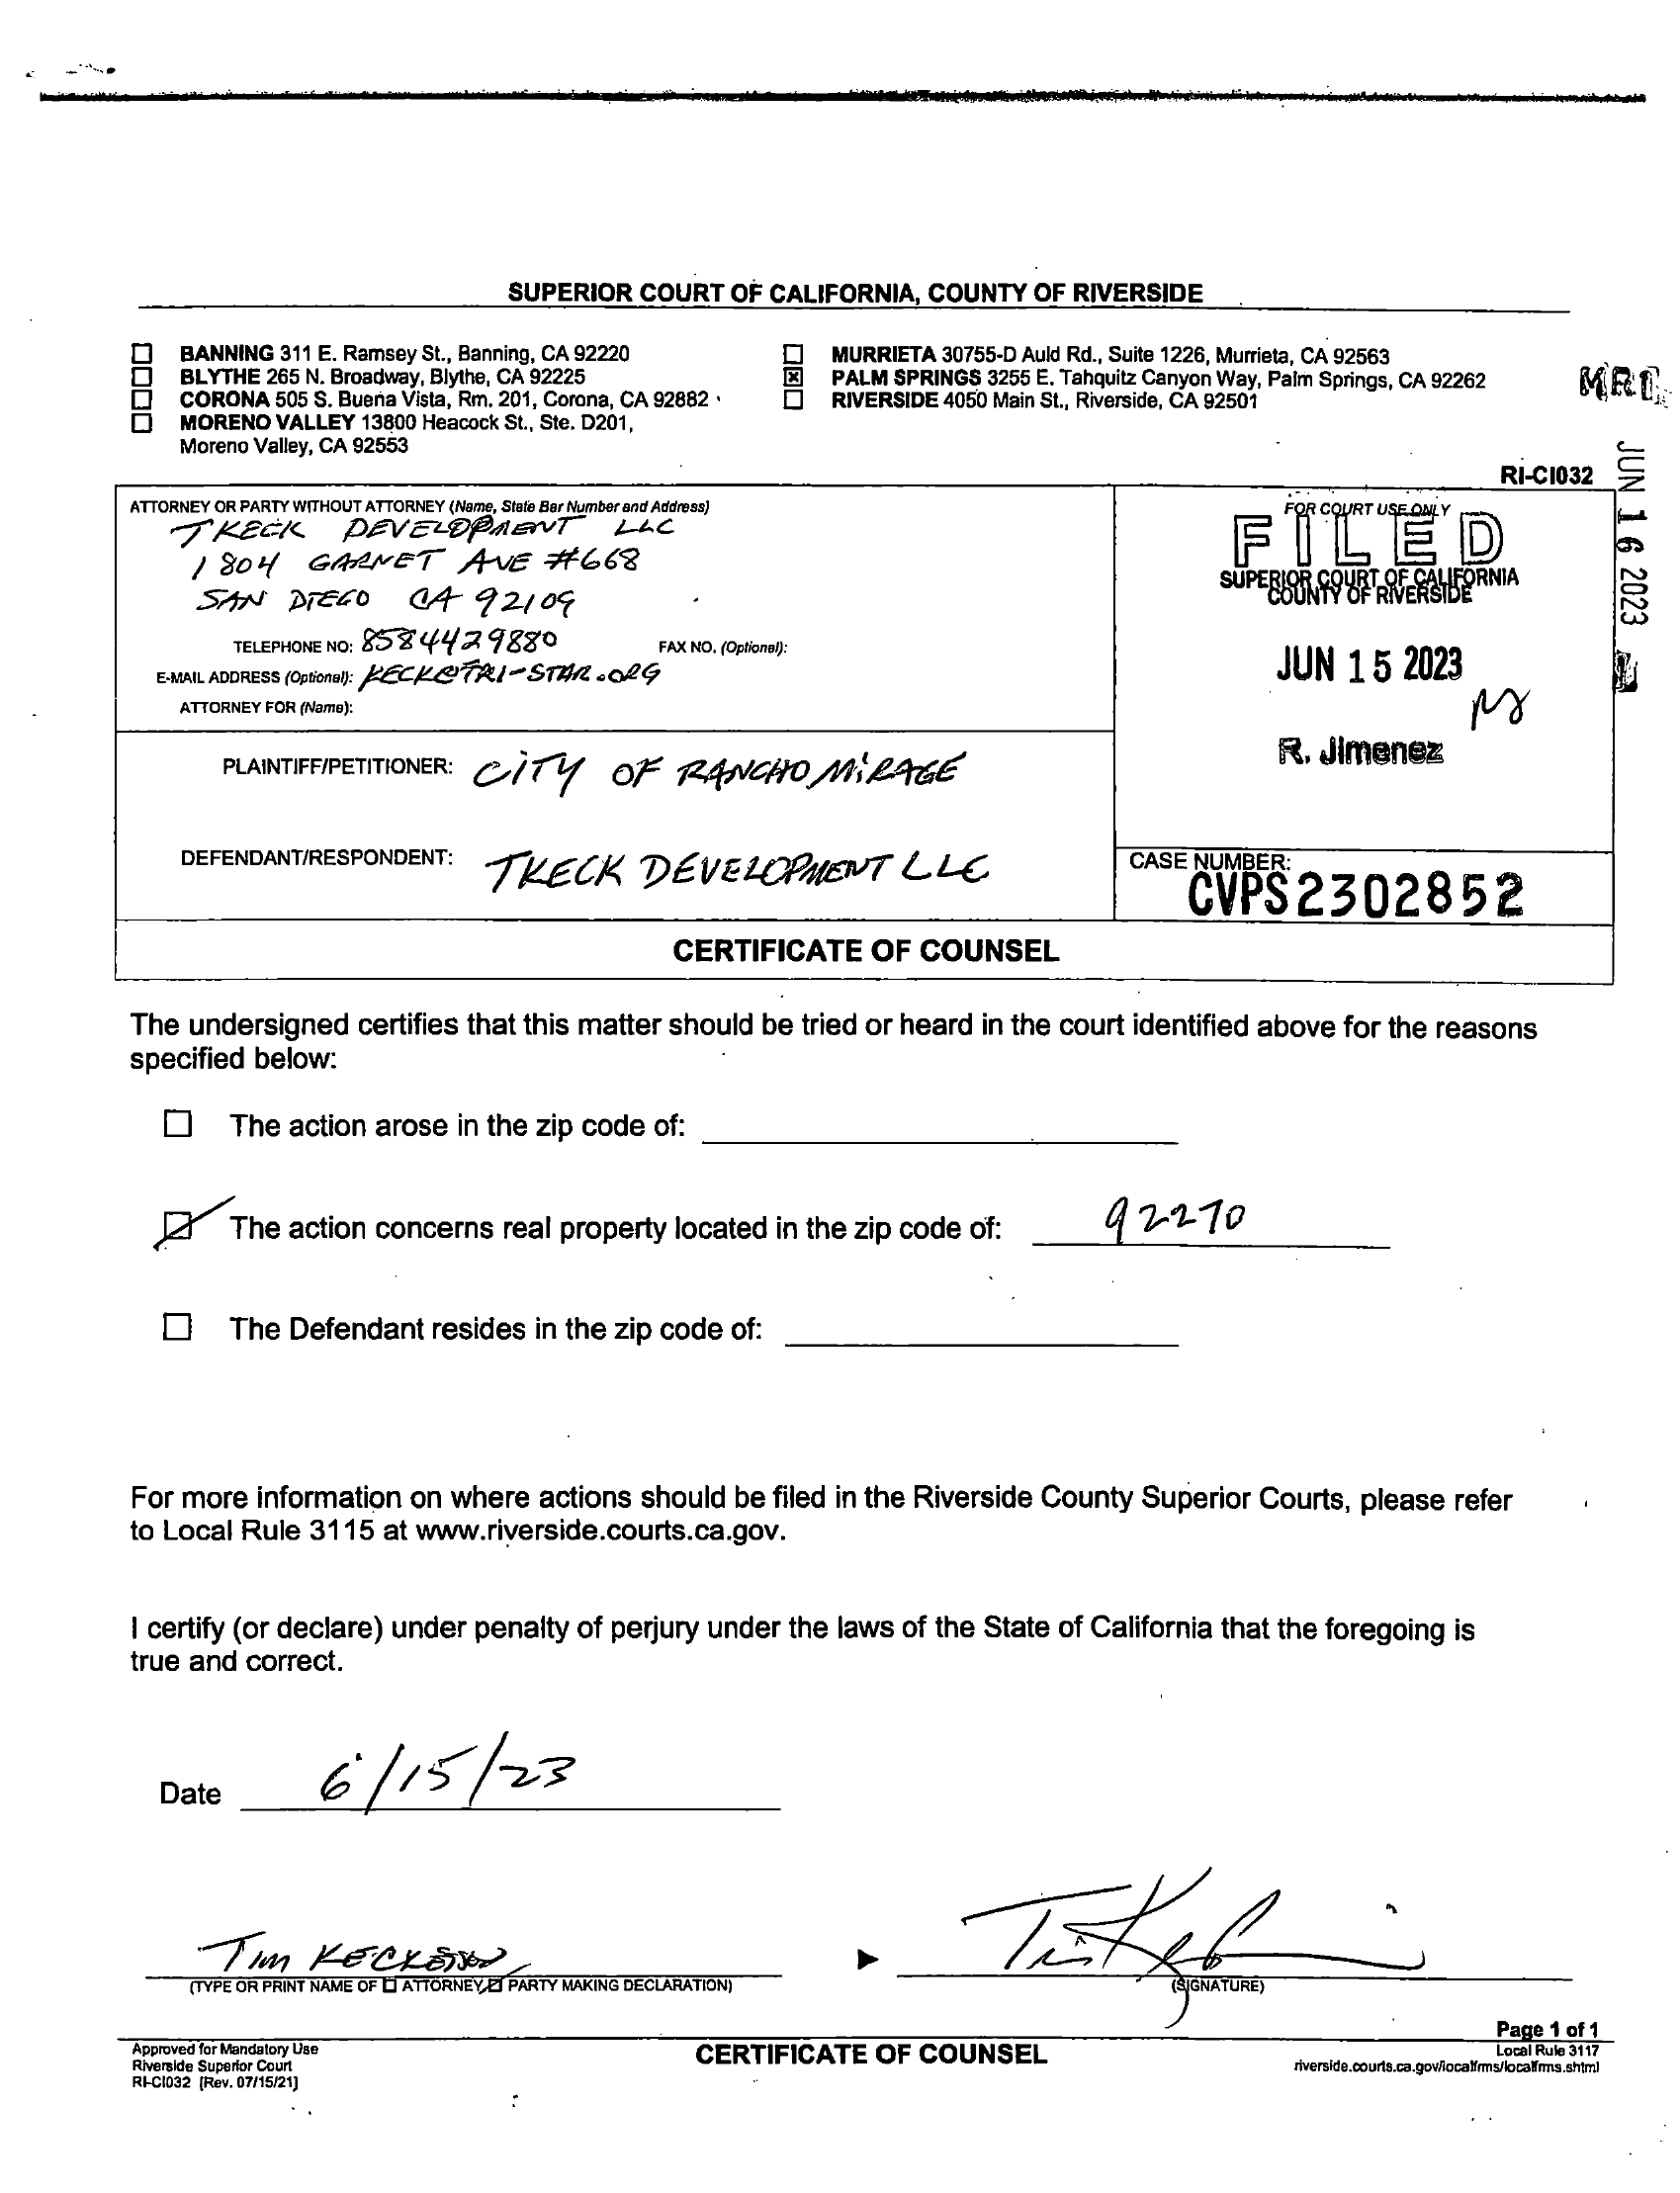 SUPERIOR COURT OF CALIFORNIA, COUNTY OF RIVERSIDE
☐ BANNING 311 E. Ramsey St., Banning, CA 92220
☐ BLYTHE 265 N. Broadway, Blythe, CA 92225
☐ CORONA 505 S. Buena Vista, Rm. 201, Corona, CA 92882
☐ MORENO VALLEY 13800 Heacock St., Ste. D201,
Moreno Valley, CA 92553
☐ MURRIETA 30755-D Auld Rd., Suite 1226, Murrieta, CA 92563
☒ PALM SPRINGS 3255 E. Tahquitz Canyon Way, Palm Springs, CA 92262
☐ RIVERSIDE 4050 Main St., Riverside, CA 92501
JUN 16 2023
RI-CI032
ATTORNEY OR PARTY WITHOUT ATTORNEY (Name, State Bar Number and Address)
TKECK DEVELOPMENT LLC
1804 GARNET AVE #668
SAN DIEGO CA 92109
TELEPHONE NO: 8584429880 FAX NO. (Optional):
E-MAIL ADDRESS (Optional): KECK@TRI-STAR.ORG
ATTORNEY FOR (Name):
FOR COURT USE ONLY
FILED
SUPERIOR COURT OF CALIFORNIA
COUNTY OF RIVERSIDE
JUN 15 2023
R. Jimenez
PLAINTIFF/PETITIONER: CITY OF RANCHO MIRAGE
DEFENDANT/RESPONDENT: TKECK DEVELOPMENT LLC
CASE NUMBER:
CVPS2302852
CERTIFICATE OF COUNSEL
The undersigned certifies that this matter should be tried or heard in the court identified above for the reasons
specified below:
☐ The action arose in the zip code of:
☑ The action concerns real property located in the zip code of: 92270
☐ The Defendant resides in the zip code of:
For more information on where actions should be filed in the Riverside County Superior Courts, please refer
to Local Rule 3115 at www.riverside.courts.ca.gov.
I certify (or declare) under penalty of perjury under the laws of the State of California that the foregoing is
true and correct.
Date 6/15/23
TIM
(TYPE OR PRINT NAME OF ☐ ATTORNEY ☑ PARTY MAKING DECLARATION)
(SIGNATURE)
Page 1 of 1
Approved for Mandatory Use
Riverside Superior Court
RI-CI032 [Rev. 07/15/21]
CERTIFICATE OF COUNSEL
Local Rule 3117
riverside.courts.ca.gov/localfrms/localfrms.shtml